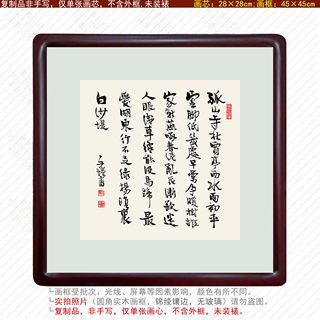 复制品，非手写，仅单张画芯，不含外框，未装裱
画芯：28×28cm；画框：45×45cm
孤山寺北賈亭西水面初平
雲腳低幾處早鶯爭暖樹誰
家新燕啄春泥亂花漸欲迷
人眼淺草才能沒馬蹄最
愛湖東行不足綠楊陰裏
白沙堤
└画框受批次、光线、屏幕等因素影响，颜色有所不同。
└实拍照片（圆角实木画框，锦绫镶边，无玻璃）请勿盗图。
└复制品，非手写，仅单张画心，不含外框，未装裱。